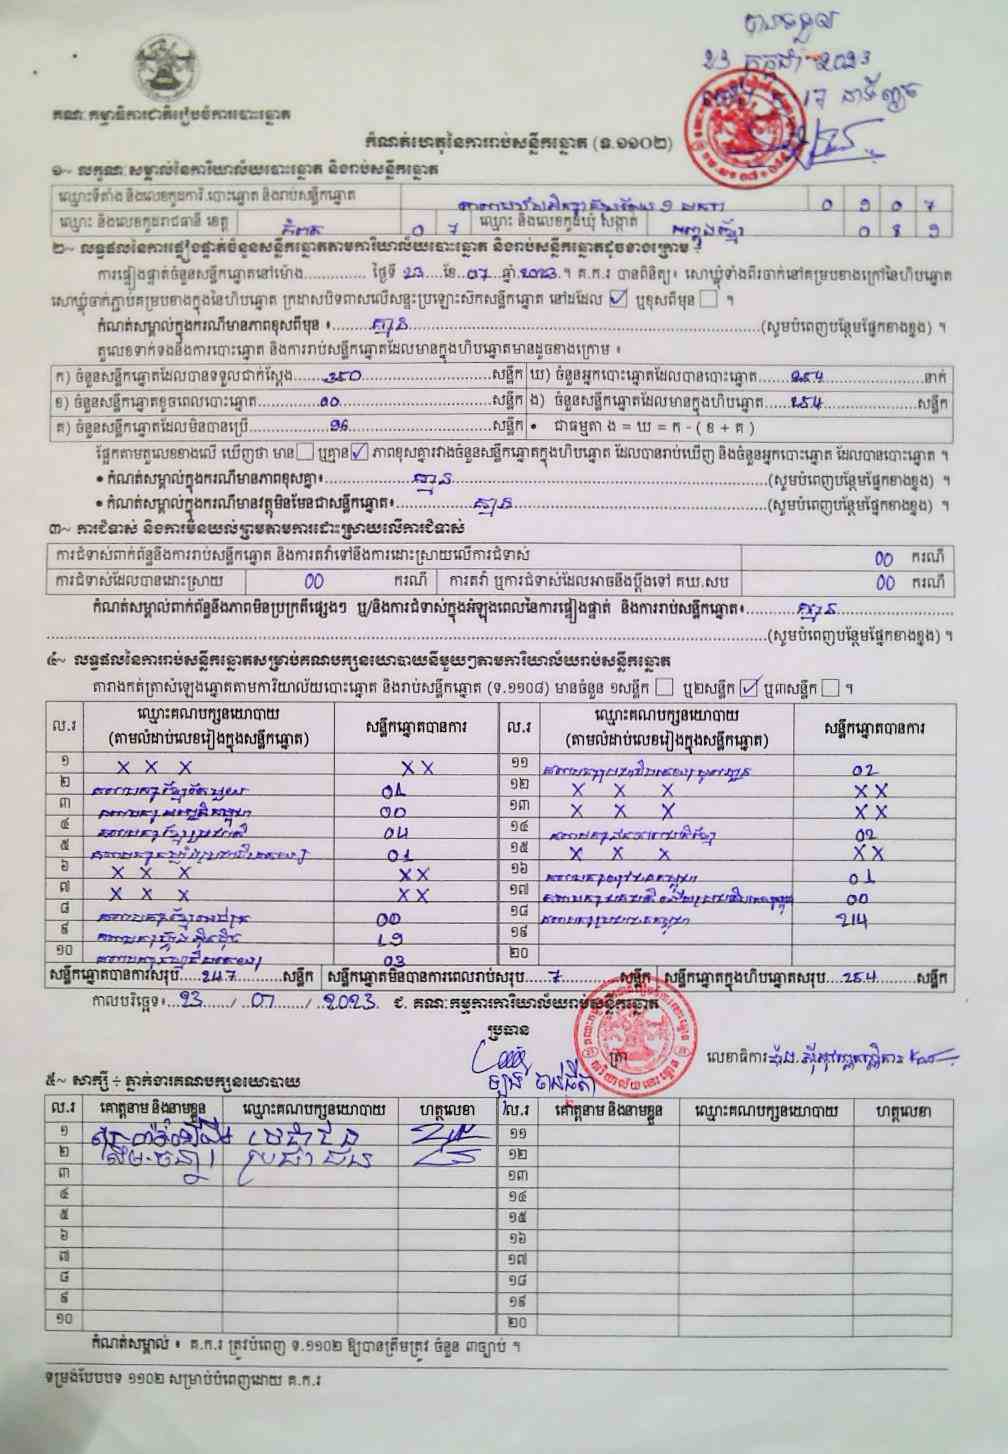 បានទទួល
23 កក្កដា 2023
គណៈកម្មាធិការជាតិរៀបចំការបោះឆ្នោត
កំណត់ហេតុនៃការរាប់សន្លឹកឆ្នោត (ទ.១១០២)
១~ លក្ខណៈសម្គាល់នៃការិយាល័យបោះឆ្នោត និងរាប់សន្លឹកឆ្នោត
ឈ្មោះទីតាំង និងលេខកូដការិ.បោះឆ្នោត និងរាប់សន្លឹកឆ្នោត
ឈ្មោះ និងលេខកូដរាជធានី ខេត្ត កំពត 0 7 ឈ្មោះ និងលេខកូដឃុំ សង្កាត់
២~ លទ្ធផលនៃការផ្ទៀងផ្ទាត់ចំនួនសន្លឹកឆ្នោតតាមការិយាល័យបោះឆ្នោត និងរាប់សន្លឹកឆ្នោតដូចខាងក្រោម ៖
ការផ្ទៀងផ្ទាត់ចំនួនសន្លឹកឆ្នោតនៅម៉ោង............. ថ្ងៃទី 23 ខែ 07 ឆ្នាំ 2023 ។ គ.ក.រ បានពិនិត្យ៖ សោឃ្លុំទាំងពីរចាក់នៅគម្របខាងក្រៅនៃហិបឆ្នោត
សោឃ្លុំចាក់ភ្ជាប់គម្របខាងក្នុងនៃហិបឆ្នោត ក្រដាសបិទពាសលើសន្ទះប្រឡោះស៊កសន្លឹកឆ្នោត នៅដដែល ☑ ឬខុសពីមុន ☐ ។
កំណត់សម្គាល់ក្នុងករណីមានភាពខុសពីមុន ៖ គ្មាន (សូមបំពេញបន្ថែមផ្នែកខាងខ្នង) ។
តួលេខទាក់ទងនឹងការបោះឆ្នោត និងការរាប់សន្លឹកឆ្នោតដែលមានក្នុងហិបឆ្នោតមានដូចខាងក្រោម ៖
ក) ចំនួនសន្លឹកឆ្នោតដែលបានទទួលជាក់ស្តែង 350 សន្លឹក ឃ) ចំនួនអ្នកបោះឆ្នោតដែលបានបោះឆ្នោត 254 នាក់
ខ) ចំនួនសន្លឹកឆ្នោតខូចពេលបោះឆ្នោត 00 សន្លឹក ង) ចំនួនសន្លឹកឆ្នោតដែលមានក្នុងហិបឆ្នោត 254 សន្លឹក
គ) ចំនួនសន្លឹកឆ្នោតដែលមិនបានប្រើ 96 សន្លឹក • ជាធម្មតា ង = ឃ = ក - ( ខ + គ )
ផ្អែកតាមតួលេខខាងលើ ឃើញថា មាន ☐ ឬគ្មាន ☑ ភាពខុសគ្នារវាងចំនួនសន្លឹកឆ្នោតក្នុងហិបឆ្នោត ដែលបានរាប់ឃើញ និងចំនួនអ្នកបោះឆ្នោត ដែលបានបោះឆ្នោត ។
• កំណត់សម្គាល់ក្នុងករណីមានភាពខុសគ្នា៖ គ្មាន (សូមបំពេញបន្ថែមផ្នែកខាងខ្នង) ។
• កំណត់សម្គាល់ក្នុងករណីមានវត្ថុមិនមែនជាសន្លឹកឆ្នោត៖ គ្មាន (សូមបំពេញបន្ថែមផ្នែកខាងខ្នង) ។
៣~ ការជំទាស់ និងការមិនយល់ព្រមតាមការដោះស្រាយលើការជំទាស់
ការជំទាស់ពាក់ព័ន្ធនឹងការរាប់សន្លឹកឆ្នោត និងការតវ៉ាទៅនឹងការដោះស្រាយលើការជំទាស់ 00 ករណី
ការជំទាស់ដែលបានដោះស្រាយ 00 ករណី ការតវ៉ា ឬការជំទាស់ដែលអាចនឹងប្តឹងទៅ គឃ.សប 00 ករណី
កំណត់សម្គាល់ពាក់ព័ន្ធនឹងភាពមិនប្រក្រតីផ្សេងៗ ឬ/និងការជំទាស់ក្នុងអំឡុងពេលនៃការផ្ទៀងផ្ទាត់ និងការរាប់សន្លឹកឆ្នោត៖ គ្មាន
(សូមបំពេញបន្ថែមផ្នែកខាងខ្នង) ។
៤~ លទ្ធផលនៃការរាប់សន្លឹកឆ្នោតសម្រាប់គណបក្សនយោបាយនីមួយៗតាមការិយាល័យរាប់សន្លឹកឆ្នោត
តារាងកត់ត្រាសំឡេងឆ្នោតតាមការិយាល័យបោះឆ្នោត និងរាប់សន្លឹកឆ្នោត (ទ.១១០៨) មានចំនួន ១សន្លឹក ☐ ឬ២សន្លឹក ☑ ឬ៣សន្លឹក ☐ ។
ល.រ ឈ្មោះគណបក្សនយោបាយ (តាមលំដាប់លេខរៀងក្នុងសន្លឹកឆ្នោត) សន្លឹកឆ្នោតបានការ ល.រ ឈ្មោះគណបក្សនយោបាយ (តាមលំដាប់លេខរៀងក្នុងសន្លឹកឆ្នោត) សន្លឹកឆ្នោតបានការ
១ X X X X X ១១ 02
២ 01 ១២ X X X X X
៣ 00 ១៣ X X X X X
៤ 04 ១៤ 02
៥ 01 ១៥ X X X X X
៦ X X X X X ១៦ 01
៧ X X X X X ១៧ 00
៨ 00 ១៨ គណបក្សប្រជាជនកម្ពុជា 214
៩ 19 ១៩
១០ 03 ២០
សន្លឹកឆ្នោតបានការសរុប 247 សន្លឹក សន្លឹកឆ្នោតមិនបានការពេលរាប់សរុប 7 សន្លឹក សន្លឹកឆ្នោតក្នុងហិបឆ្នោតសរុប 254 សន្លឹក
កាលបរិច្ឆេទ៖ 23 / 07 / 2023 ជ. គណៈកម្មការការិយាល័យរាប់សន្លឹកឆ្នោត
ប្រធាន
ត្រា លេខាធិការ
៥~ សាក្សី ÷ ភ្នាក់ងារគណបក្សនយោបាយ
ល.រ គោត្តនាម និងនាមខ្លួន ឈ្មោះគណបក្សនយោបាយ ហត្ថលេខា ល.រ គោត្តនាម និងនាមខ្លួន ឈ្មោះគណបក្សនយោបាយ ហត្ថលេខា
១ ១១
២ ប្រជាជន ១២
៣ ១៣
៤ ១៤
៥ ១៥
៦ ១៦
៧ ១៧
៨ ១៨
៩ ១៩
១០ ២០
កំណត់សម្គាល់ ៖ គ.ក.រ ត្រូវបំពេញ ទ.១១០២ ឱ្យបានត្រឹមត្រូវ ចំនួន ៣ច្បាប់ ។
ទម្រង់បែបបទ ១១០២ សម្រាប់បំពេញដោយ គ.ក.រ